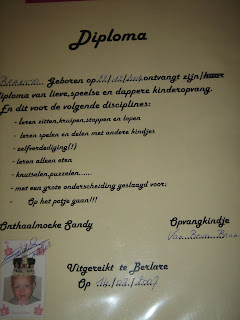 Diploma
Geboren op ontvangt zijn/haar
Diploma van lieve,speelse en dappere kinderopvang.
En dit voor de volgende disciplines:
- leren zitten,kruipen,stappen en lopen
- leren spelen en delen met andere kindjes
- zelfverdediging(!)
- leren alleen eten
- knutselen,puzzelen......
- met een grote onderscheiding geslaagd voor:
Op het potje gaan!!!
Onthaalmoeke Sandy
Opvangkindje
Uitgereikt te Berlare
Op